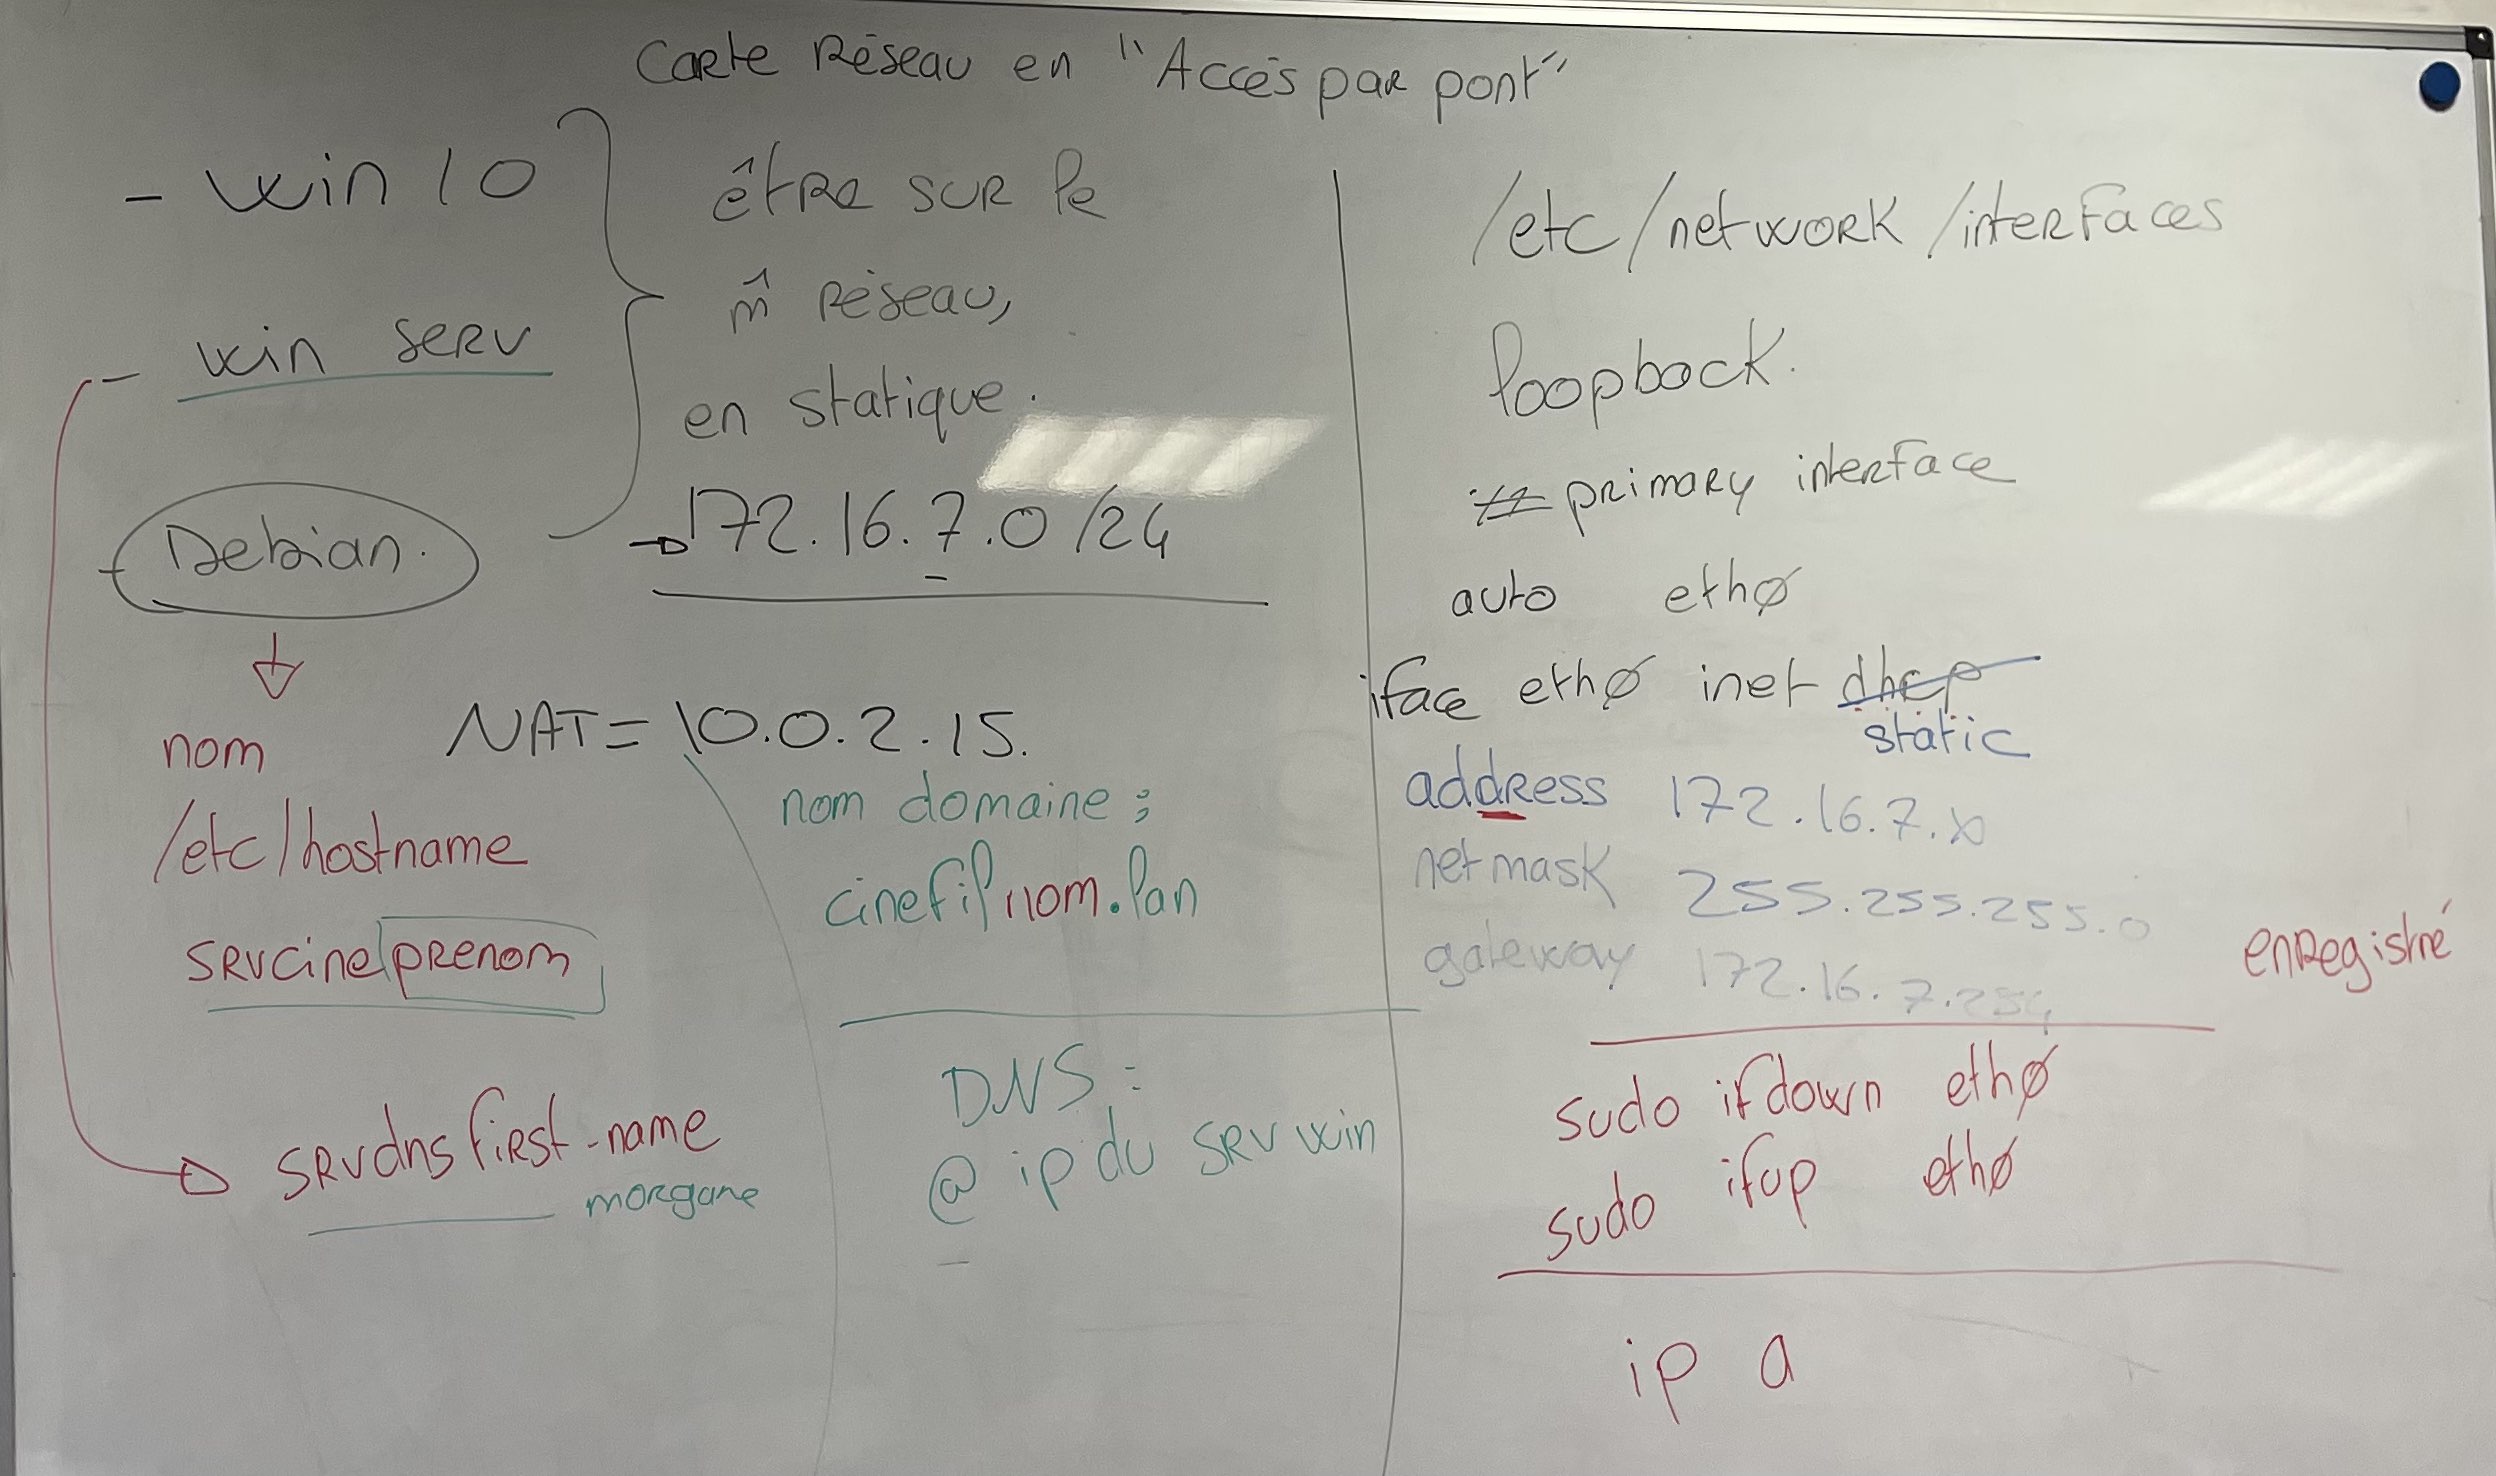 Carte Réseau en "Accès par pont"
- Win 10
- win serv
- Debian.
être sur le
m̂ réseau,
en statique.
→ 172.16.7.0 /24
NAT = 10.0.2.15.
nom
/etc/hostname
srvcineprenom
srvdnsfirst-name
morgane
nom domaine :
cinefilnom.lan
DNS :
@ ip du srv win
/etc/network/interfaces
loopback.
# primary interface
auto eth0
iface eth0 inet dhcp
static
address 172.16.7.x
netmask 255.255.255.0
gateway 172.16.7.254
enregistré
sudo ifdown eth0
sudo ifup eth0
ip a